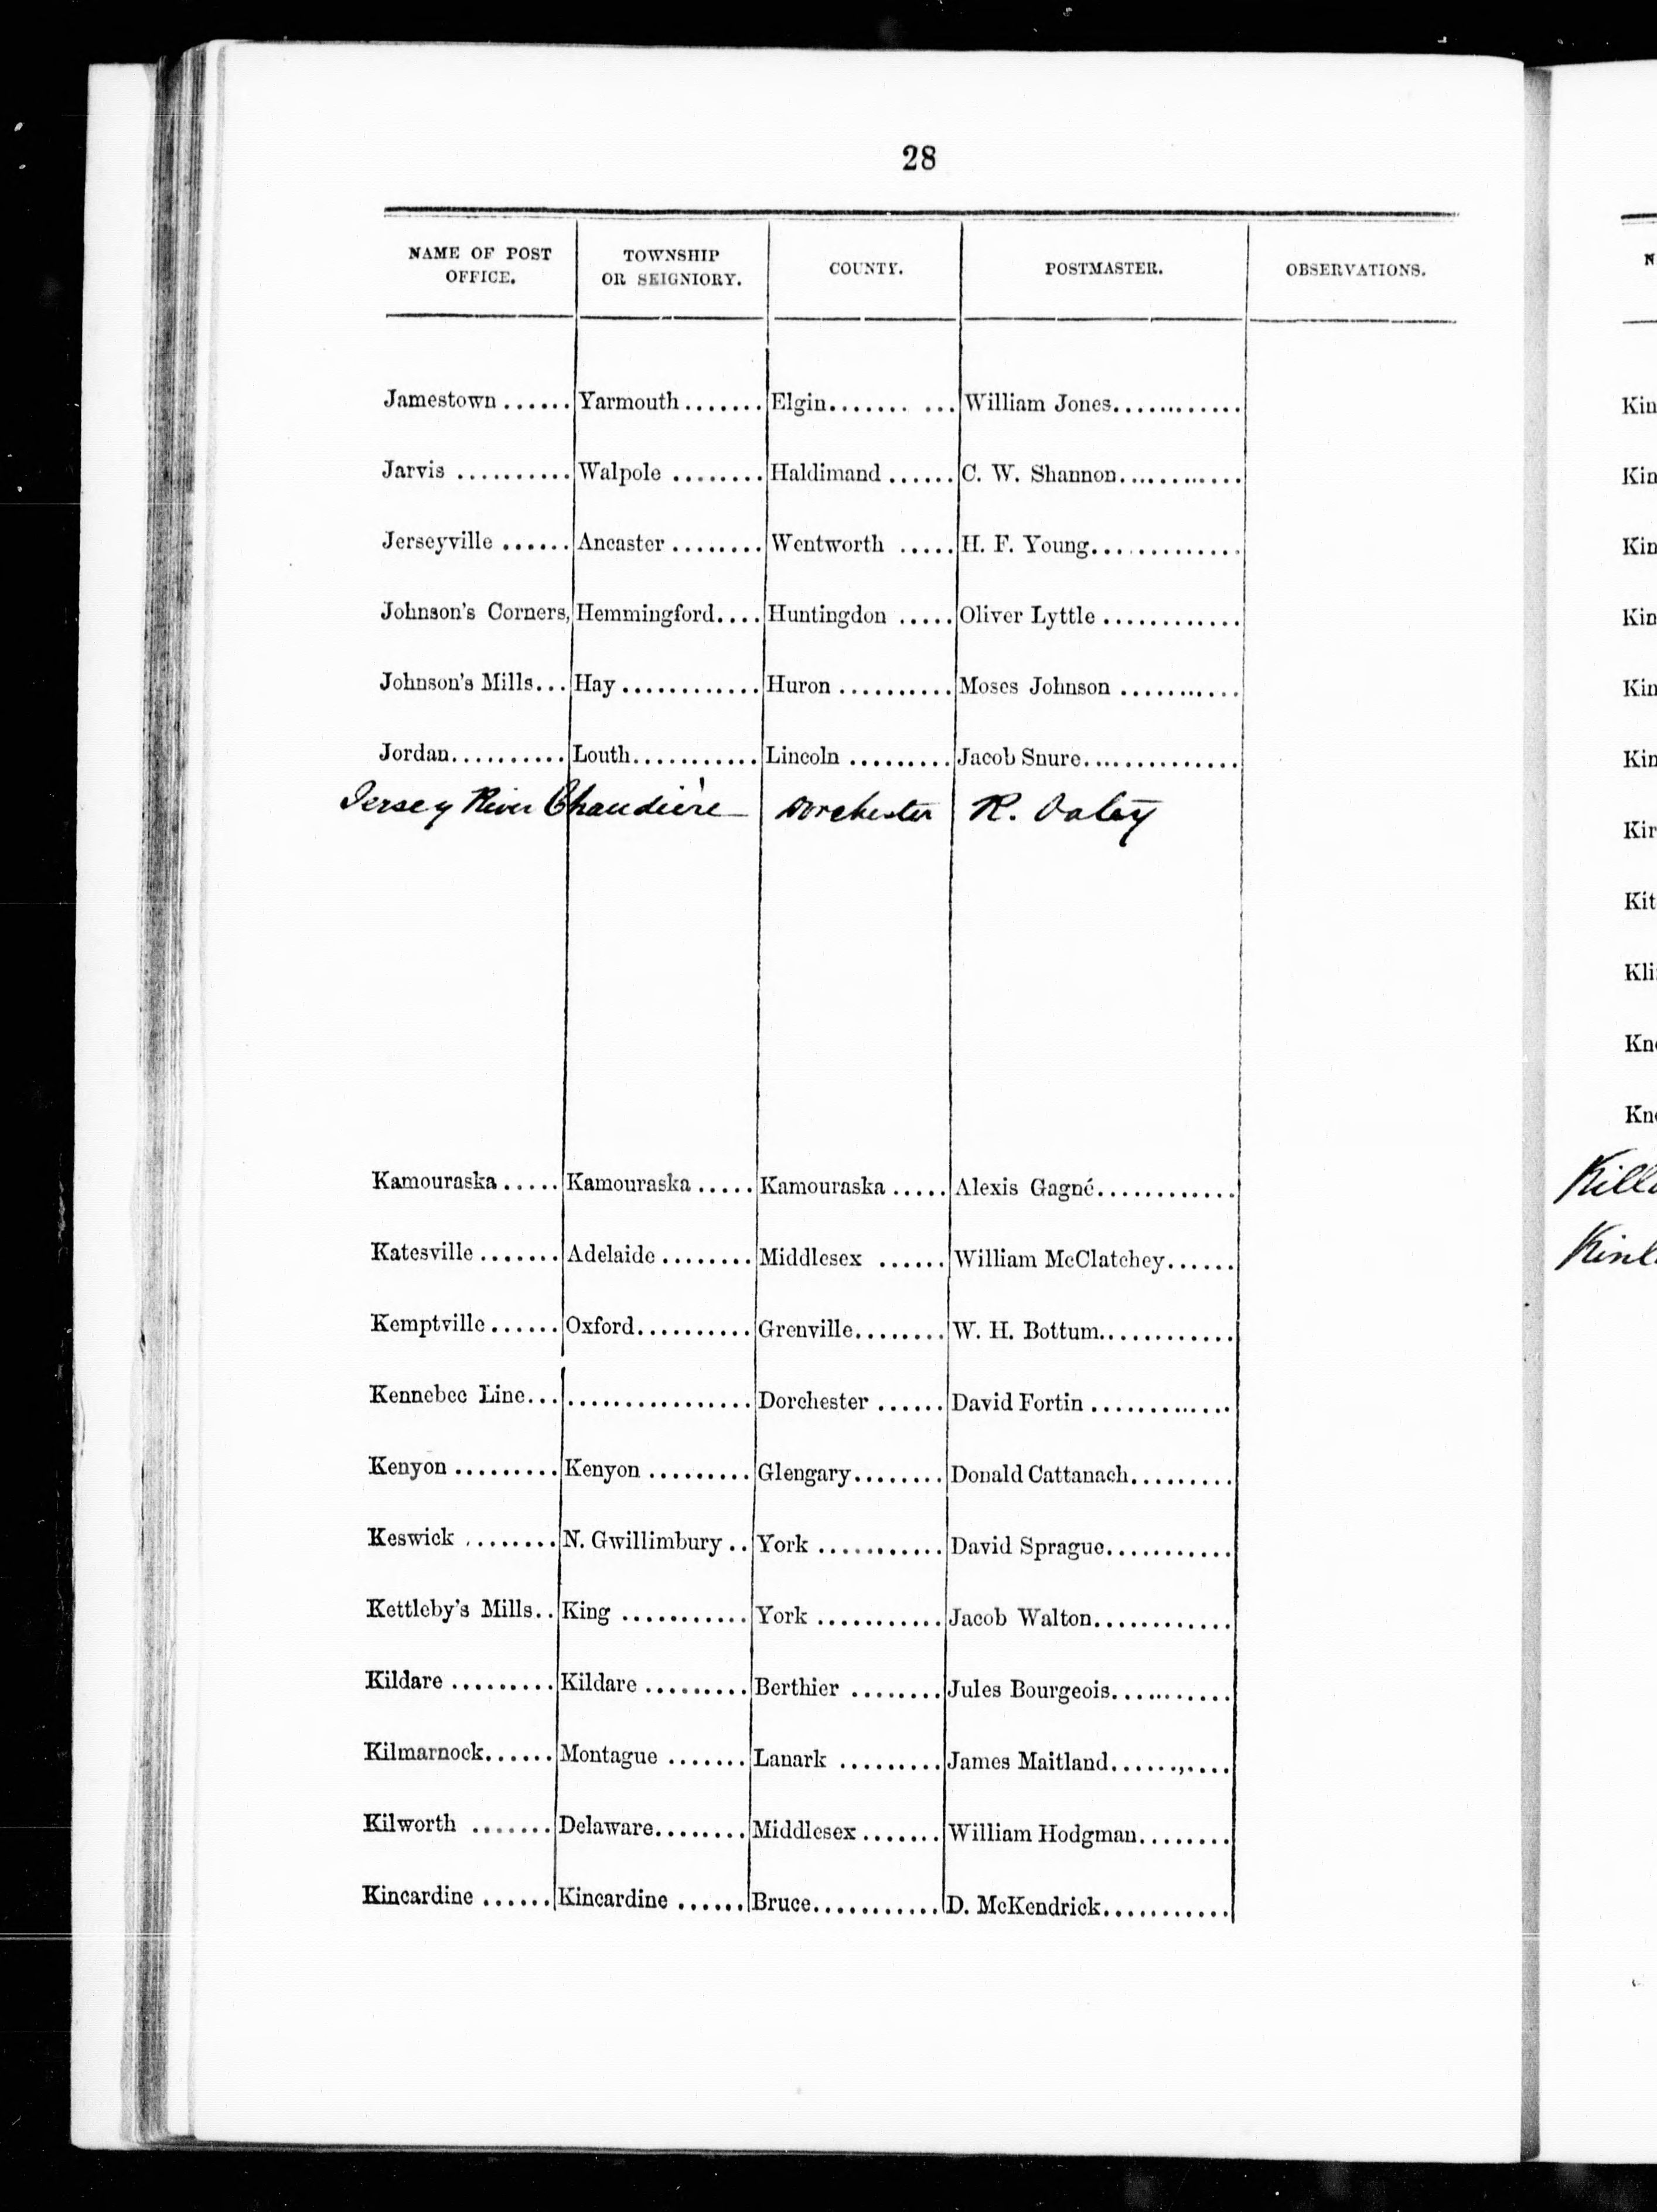 28
NAME OF POST OFFICE. TOWNSHIP OR SEIGNIORY. COUNTY. POSTMASTER. OBSERVATIONS.
Jamestown ...... Yarmouth....... Elgin....... ... William Jones............
Jarvis .......... Walpole ........ Haldimand ...... C. W. Shannon...........
Jerseyville ...... Ancaster ........ Wentworth ..... H. F. Young.............
Johnson's Corners, Hemmingford.... Huntingdon ..... Oliver Lyttle ............
Johnson's Mills... Hay............ Huron .......... Moses Johnson ...........
Jordan.......... Louth........... Lincoln ......... Jacob Snure..............
Jersey River Chaudière Dorchester R. Oaley
Kamouraska..... Kamouraska..... Kamouraska..... Alexis Gagné............
Katesville....... Adelaide........ Middlesex ...... William McClatchey......
Kemptville...... Oxford.......... Grenville........ W. H. Bottum............
Kennebec Line... ................ Dorchester ...... David Fortin ............
Kenyon ......... Kenyon ......... Glengary........ Donald Cattanach.........
Keswick ........ N. Gwillimbury.. York ........... David Sprague...........
Kettleby's Mills.. King ........... York ........... Jacob Walton............
Kildare ......... Kildare ......... Berthier ........ Jules Bourgeois...........
Kilmarnock...... Montague ....... Lanark ......... James Maitland......,....
Kilworth ....... Delaware........ Middlesex....... William Hodgman........
Kincardine ...... Kincardine ...... Bruce........... D. McKendrick...........